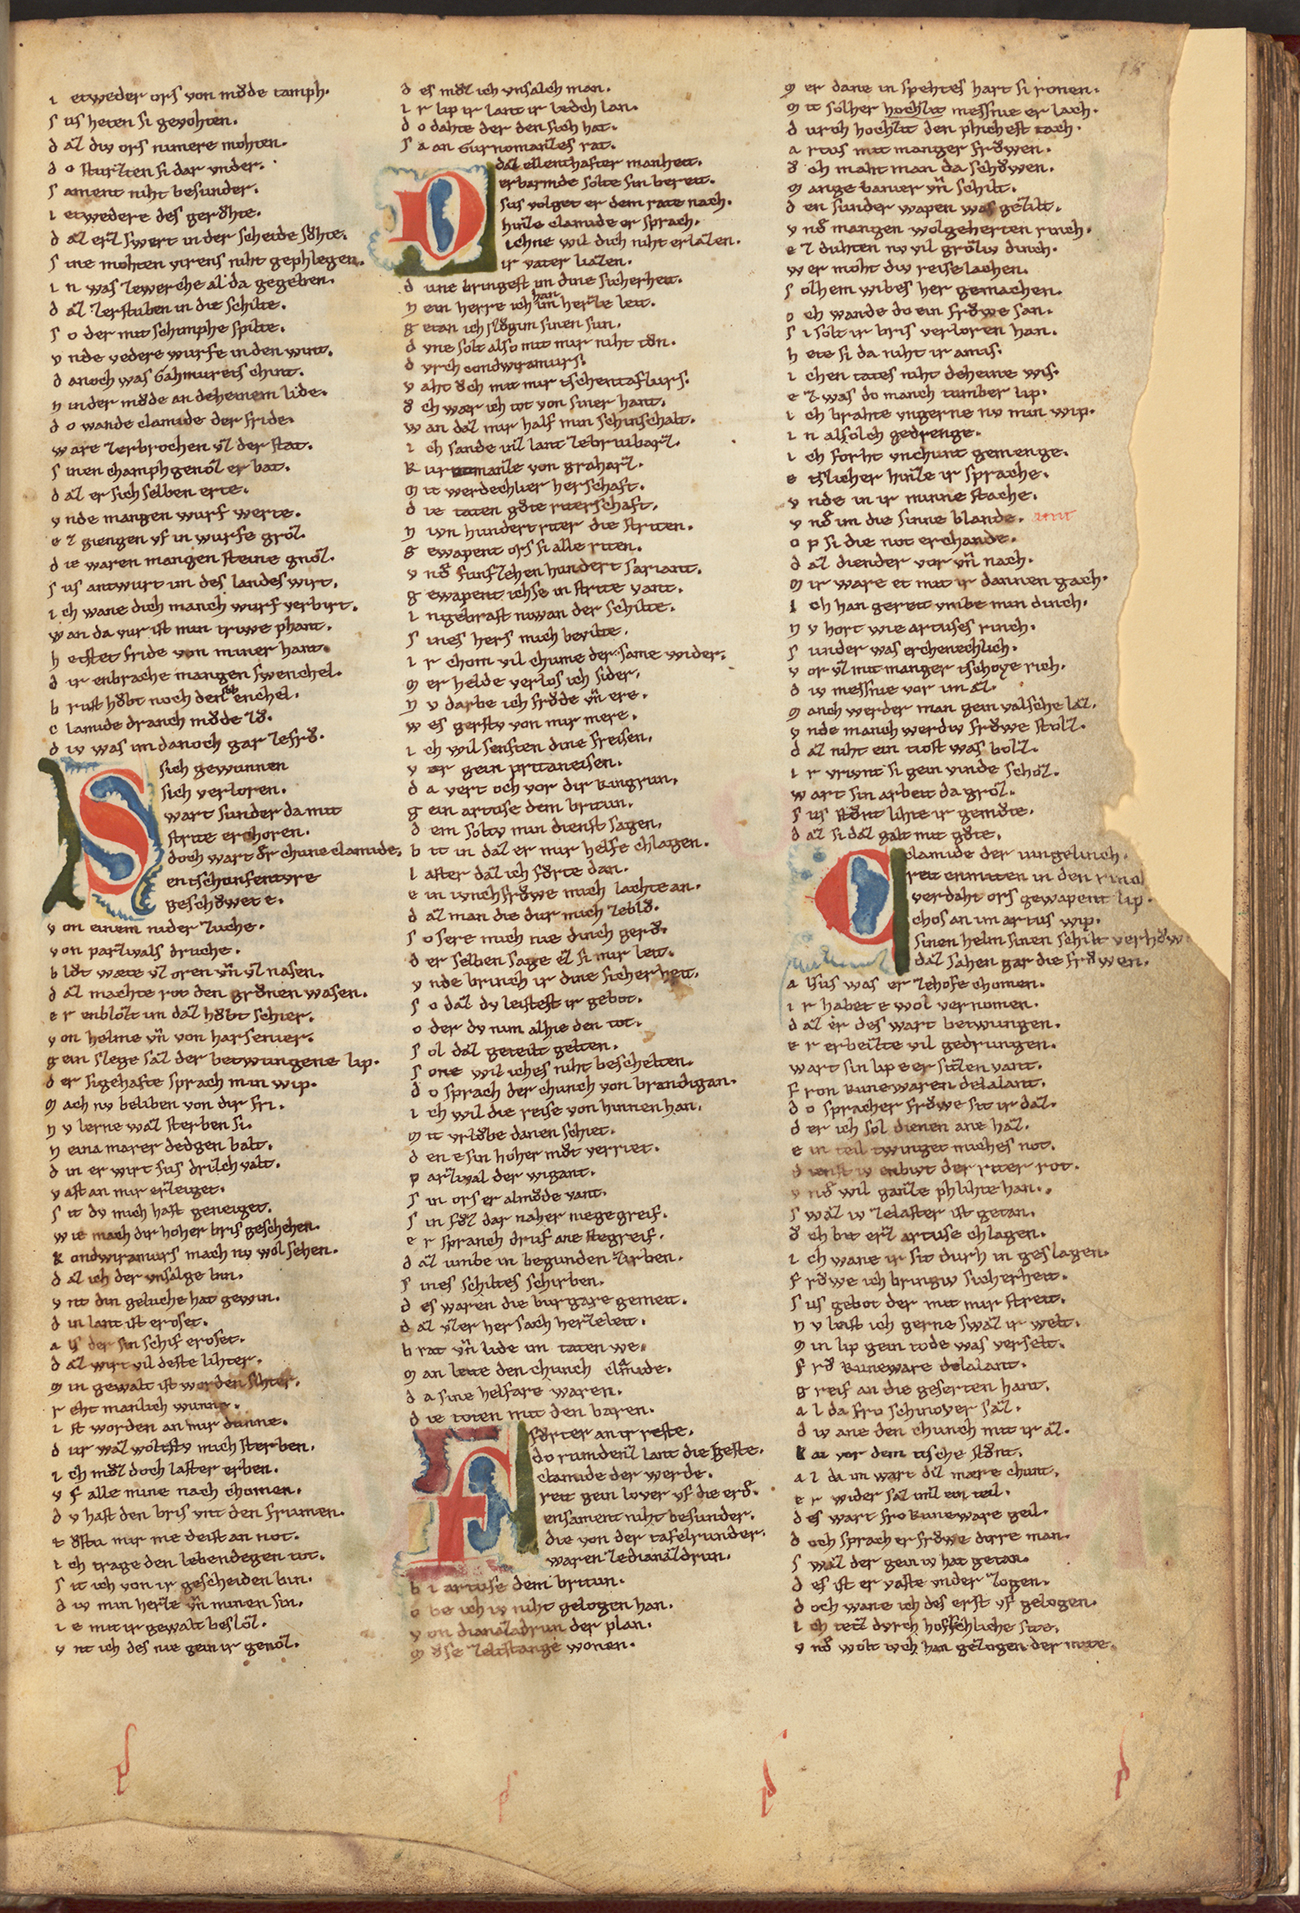 i etweder ors von mǒde tamph.
s us heten si gevohten.
d az diu ors numere mohten.
d o sturzten si dar vnder.
s ament niht besunder.
i etwedere des gerǒhte.
d az erz swert in der scheide sǒhte.
s ine mohten virens niht gephlegen.
i n was zewerche al da gegeben.
d az zerstuben in die schilte.
s o der mit schimphe spilte.
v nde vedere wurfe in den wint.
d anoch was Gahmurets chint.
n inder mǒde an deheinem lide.
d o wande clamide der fride.
ware zerbrochen vz der stat.
s inen champhgenoz er bat.
d az er sich selben erte.
v nde mangen wurf werte.
e z giengen vf in wurfe groz.
d ie waren mangen steine gnoz.
s us antwurt im des landes wirt.
i ch wane dich manch wurf verbirt.
w an da vur ist min triwe phant.
h etstet fride von miner hant.
d ir enbrache mangen swenchel.
b rust hǒbt noch den schenchel.
c lamide dranch mǒde zǒ.
d iv was im danoch gar zefrǒ.
S sich gewunnen
sich verloren.
wart sunder da mit
strite erchoren.
doch wart ǒr chune clamide.
entschunfentvre
geschǒwet e.
v on einem nider zuche.
v on parzivals druche.
b lǒt wæte vz oren vñ vz nasen.
d az machte rot den grǒnen wasen.
e r enblozt im daz hǒbt schier.
v on helme vñ von harsenier.
g ein slege saz der betwungene lip.
d er sigehafte sprach min wip.
m ach nv beliben von dir fri.
n v lerne waz sterben si.
n eina marer dedgen balt.
d in er wirt sus drizch valt.
v ast an mir erzeiget.
s it dv mich hast geneiget.
w ie mach dir hoher bris geschehen.
k ondwiramurs mach nv wol sehen.
d az ich der vnsalge bin.
v nt din geluche hat gewin.
d in lant ist eroset.
a ls der sin schif eroset.
d az wirt vil deste lihter.
m in gewalt ist worden sihter.
r eht manlich wunne.
i st worden an mir dunne.
d ur waz woltstv mich sterben.
i ch mǒz doch laster erben.
v f alle mine nach chomen.
d v hast den bris vnt den frumen.
t ǒstu mir me deist an not.
i ch trage den lebendegen tot.
s it ich von ir gescheiden bin.
d iv min herze vñ minen sin.
i e mit ir gewalt besloz.
v nt ich des nie gein ir genoz.
d es mǒz ich vnsalich man.
i r lip ir lant ir ledch lan.
d o dahte der den sich hat.
s a an Gurnomanzes rat.
D daz ellenthafter manheit.
erbarmde solte sin bereit.
sus volget er dem rate nach.
hinze clamide or sprach.
ichne wil dich niht erlazen.
ir vater liazen.
d une bringest im dine sicherheit.
n ein herre ich han im herze leit.
g etan ich slǒgim sinen sun.
d vne solt also mit mir niht tǒn.
d vrch condwiramurs.
v aht ǒch mit mir tschentaflurs.
ǒ ch war ich tot von siner hant.
w an daz mir half min schinschalt.
i ch sande inz lant zebrubarz.
K ur manze von graharz.
m it werdechlier herschaft.
d ie taten gǒte riterschaft.
n ivn hundert riter die striten.
g ewapent ors si alle riten.
v nǒ funfzehen hundert sariant.
g ewapent ichse in strite vant.
i ngebrast niwan der schilte.
s ines hers mich bevilte.
i r chom vil chume der same wider.
m er helde verlos ich sider.
n v darbe ich frǒde vñ ere.
w es gerstv von mir mere.
i ch wil senften dine freisen.
v ar gein pritaneisen.
d a vert och vor dir Kingrun.
g ein artuse dem britun.
d em soltv min dienst sagen.
b it in daz er mir helfe chlagen.
l aster daz ich fǒrte dan.
e in ivnchfrǒwe mich lachte an.
d az man die dur mich zeblǒ.
s o sere mich nie dinch gerǒ.
d er selben sage ez si mir leit.
v nde brinch ir dine sicherheit.
s o daz dv leistest ir gebot.
o der dv nim alhie den tot.
s ol daz geteilt gelten.
s one wil iches niht beschelten.
d o sprach der chunch von brandigan.
i ch wil die reise von hinnen han.
m it vrlǒbe danen schiet.
d en e sin hoher mǒt verriet.
p arzival der wigant.
s in ors er almǒde vant.
s in fǒz dar naher nie gegreif.
e r spranch druf ane stegreif.
d az umbe in begunden zirben.
s ines schiltes schirben.
d es waren die burgare gemeit.
d az vzer her sach herzeleit.
b rat vñ lide im taten we.
m an leite den chunch clamide.
d a sine helfare waren.
d ie toten mit den baren.
F fǒrter an ir reste.
do rumdenz lant die geste.
clamide der werde.
reit gein lover vf die erǒ.
ensament niht besunder.
die von der tafelrunder.
waren ze dianazdrun.
b i artuse dem britun.
o be ich iv niht gelogen han.
v on dianazdrun der plan.
m ǒse zeltstange wonen.
m er dane in spehtes hart si ronen.
m it solher hochzit messnie er lach.
d urch hochzit den phichest tach.
a rtus mit manger frǒwen.
ǒ ch maht man da schǒwen.
m ange banier vñ schilt.
d en sunder wapen was gezilt.
v nǒ mangen wolgeherten rinch.
e z duhten nv vil groziv dinch.
w er moht div reise lachen.
s olhem wibes her gemachen.
o ch wande do ein frǒwe san.
s i solt ir bris verloren han.
h ete si da niht ir amis.
i chen tates niht deheine wis.
e z was do manch tumber lip.
i ch brahte vngerne nv min wip.
i n alsolch gedrenge.
i ch forht vnchunt gemenge.
e tslicher hinze ir sprache.
v nde in ir minne stache.
v nǒ im die sinne blande.
o p si die not erchande.
d az diender vor vñ nach.
m ir ware et mit ir dannen gach.
I ch han geret vmbe min dinch.
n v hort wie artuses rinch.
s under was erchenechlich.
v or vz mit manger tschoye rich.
d iv messnie vor im az.
m anch werder man gein valsche laz.
v nde manch werdiv frǒwe stolz.
d az niht ein tiost was bolz.
i r vrivnt si gein vinde schoz.
w art sin arbeit da groz.
s us stǒnt lihte ir gemǒte.
d az si daz galt mit gǒte.
C clamide der iungelinch.
reit enmitten in den rinch
verdaht ors gewapent lip.
chos an im artus wip.
sinen helm sinen schilt verhǒw
daz sahen gar die frǒwen.
a lsus was er zehofe chomen.
i r habet e wol vernomen.
d az er des wart betwungen.
e r erbeizte vil gedrungen.
wart sin lip e er sitzen vant.
f ron kunewaren delalant.
d o sprach er frǒwe sit ir daz.
d er ich sol dienen ane haz.
e in teil twinget miches not.
d ienst iv enbivt der riter rot.
v nǒ wil ganze phlihte han.
s waz iv zelaster ist getan.
ǒ ch bet erz artuse chlagen.
i ch wane ir sit durh in geslagen.
f rǒwe ich bringiv sicherheit.
s us gebot der mit mir streit.
n v leist ich gerne swaz ir welt.
m in lip gein tode was verselt.
f rǒ kuneware delalant.
g reif an die geserten hant.
a l da fro schinover saz.
d iv ane den chunch mit ir az.
k ai vor dem tische stǒnt.
a l da im wart diz mare chunt.
e r wider saz inz ein teil.
d es wart fro kuneware geil.
d och sprach er frǒwe dirre man.
s waz der gein iv hat getan.
d es ist er vaste vnder zogen.
d och wane ich des erst vf gelogen.
i ch tetz dvrch hofschliche site.
v nǒ wolt ivch han gezogen der mite.